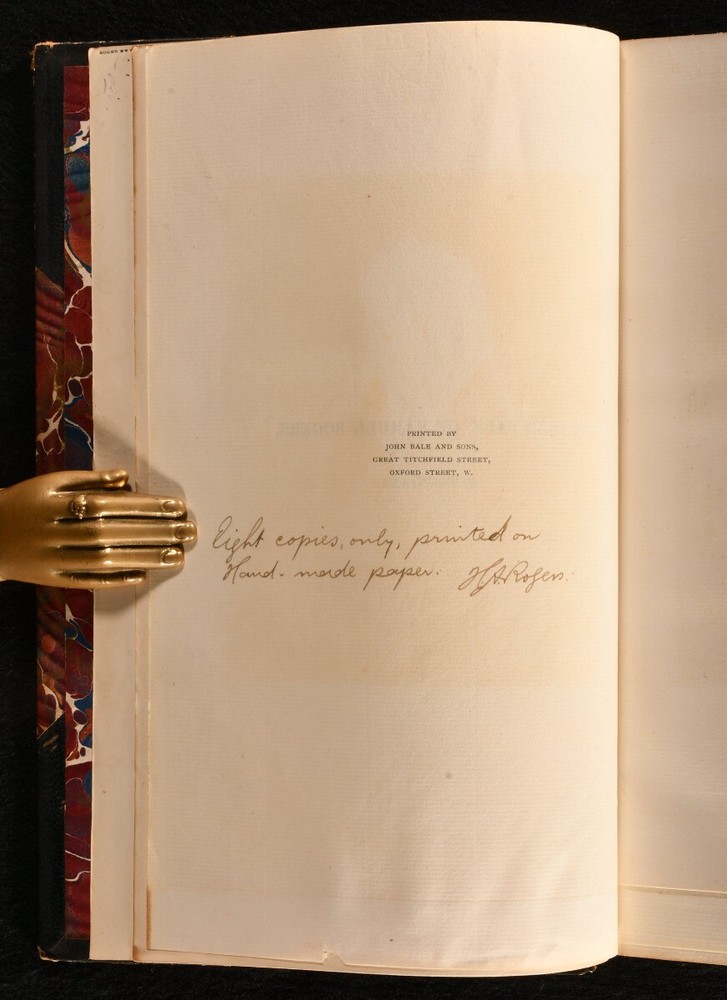 PRINTED BY
JOHN BALE AND SONS,
GREAT TITCHFIELD STREET,
OXFORD STREET, W.
Eight copies, only, printed on
Hand-made paper. H.A. Rogers.